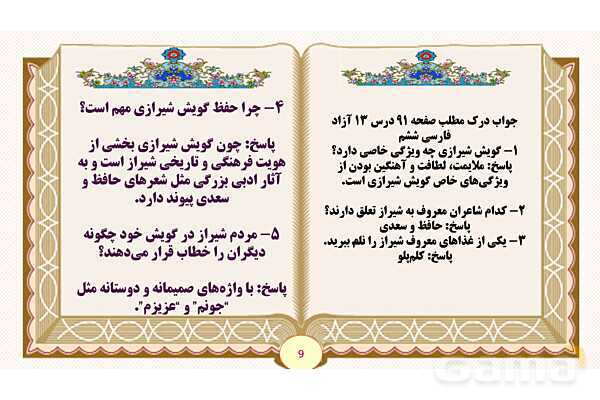 جواب درک مطلب صفحه ۹۱ درس ۱۳ آزاد
فارسی ششم
۱- گویش شیرازی چه ویژگی خاصی دارد؟
پاسخ: ملایمت، لطافت و آهنگین بودن از
ویژگی‌های خاص گویش شیرازی است.
۲- کدام شاعران معروف به شیراز تعلق دارند؟
پاسخ: حافظ و سعدی
۳- یکی از غذاهای معروف شیراز را نلم ببرید.
پاسخ: کلم‌پلو
۴- چرا حفظ گویش شیرازی مهم است؟
پاسخ: چون گویش شیرازی بخشی از
هویت فرهنگی و تاریخی شیراز است و به
آثار ادبی بزرگی مثل شعرهای حافظ و
سعدی پیوند دارد.
۵- مردم شیراز در گویش خود چگونه
دیگران را خطاب قرار می‌دهند؟
پاسخ: با واژه‌های صمیمانه و دوستانه مثل
"جونم" و "عزیزم".
9
Gama